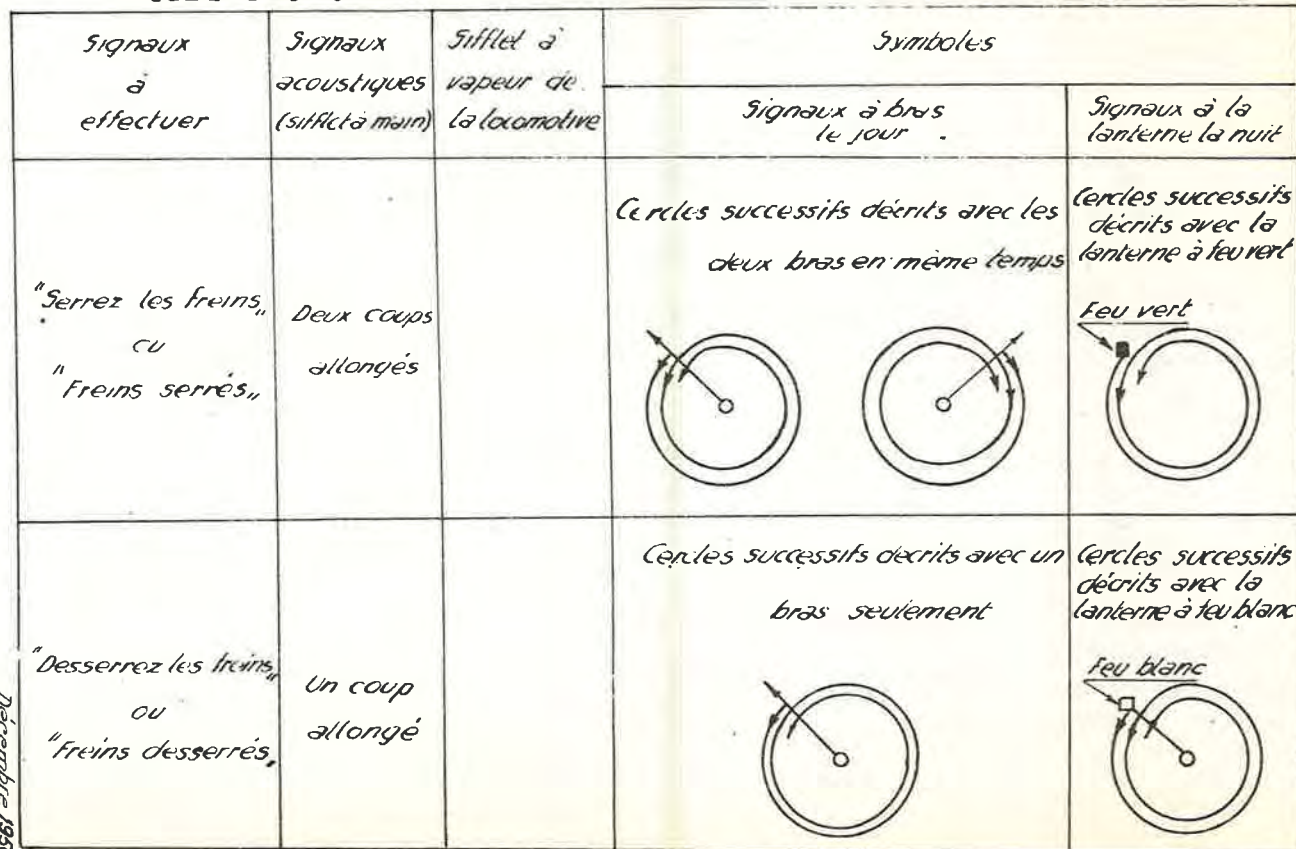 Signaux
à
effectuer
Signaux
acoustiques
(sifflet à main)
Sifflet à
vapeur de
la locomotive
Symboles
Signaux à bras
le jour .
Signaux à la
lanterne la nuit
"Serrez les freins„
ou
"Freins serrés„
Deux coups
allongés
Cercles successifs décrits avec les
deux bras en même temps
Cercles successifs
décrits avec la
lanterne à feu vert
Feu vert
"Desserrez les freins„
ou
"Freins desserrés„
Un coup
allongé
Cercles successifs décrits avec un
bras seulement
Cercles successifs
décrits avec la
lanterne à feu blanc
Feu blanc
Décembre